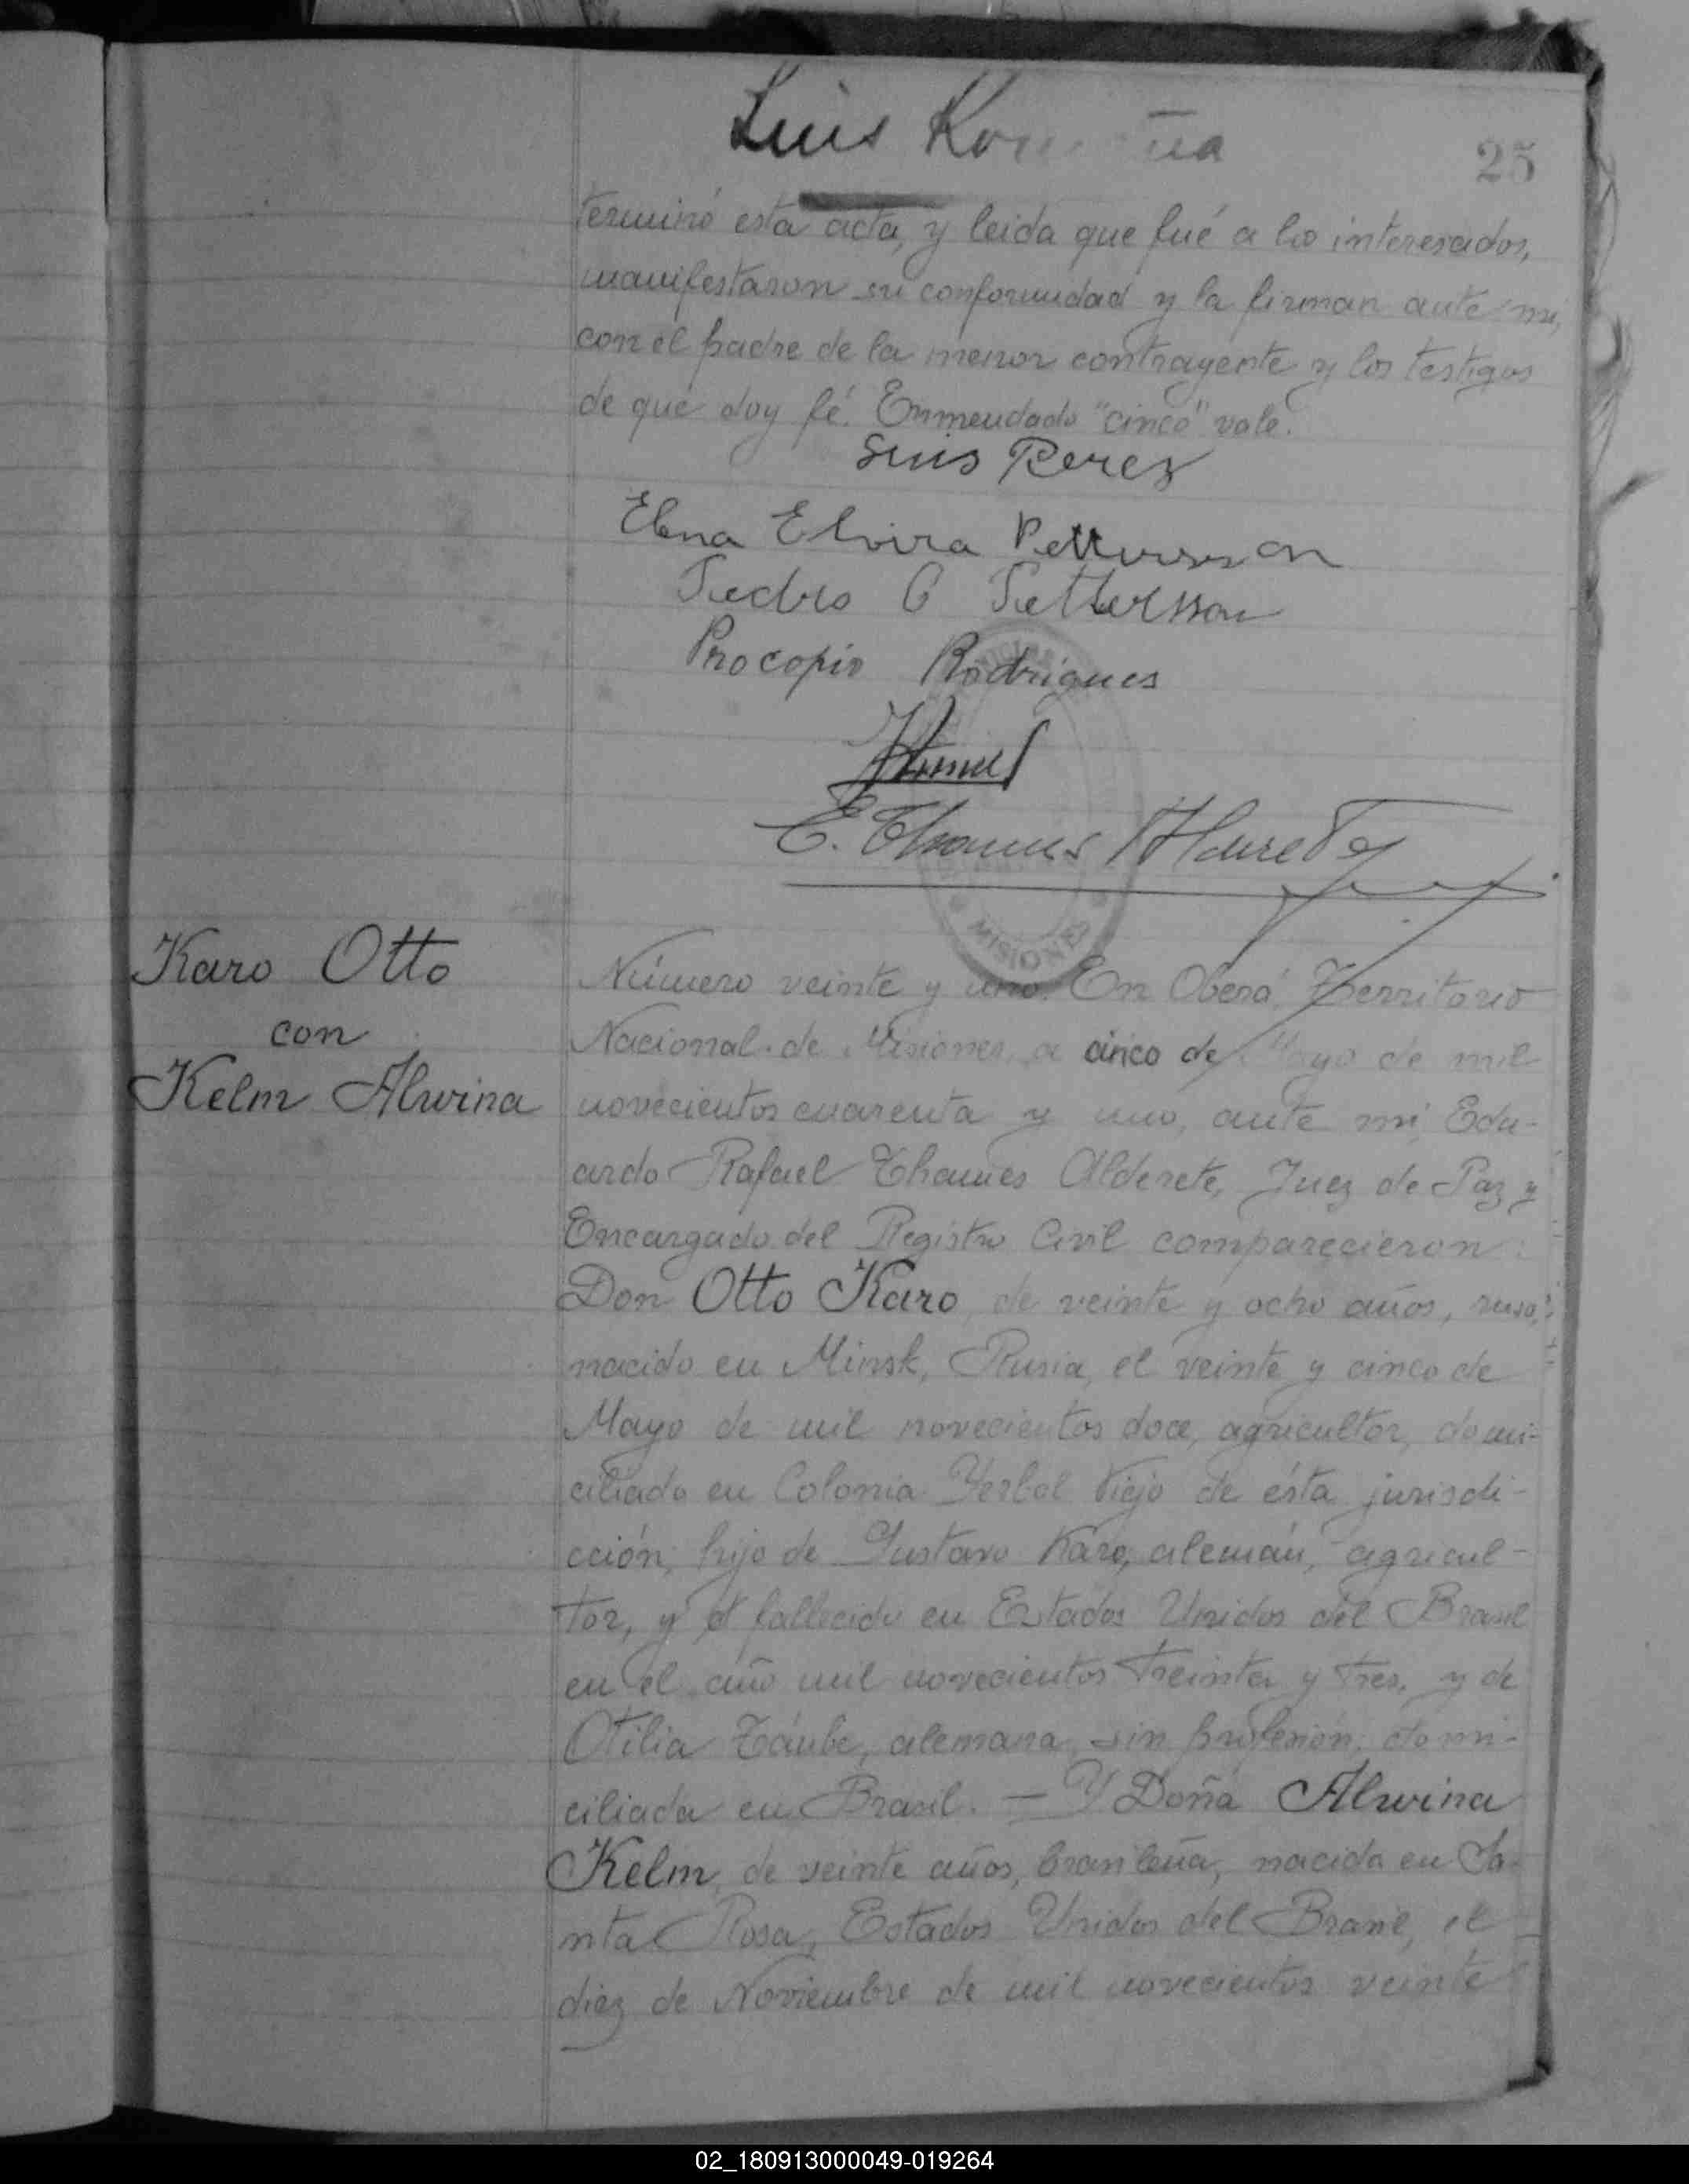 Luis
25
terminó esta acta, y leida que fué a los interesados,
manifestaron su conformidad y la firman ante mi,
con el padre de la menor contrayente y los testigos
de que doy fé. Enmendado "cinco" vale.
Luis Perez
Elena Elvira Pettersson
Pedro O Pettersson
Procopio Rodrigues
E. Thames Alderete
MISIONES
Karo Otto
con
Kelm Alwina
Número veinte y uno. En Oberá, Territorio
Nacional de Misiones, a cinco de Mayo de mil
novecientos cuarenta y uno, ante mi, Edu-
ardo Rafael Thames Alderete, Juez de Paz y
Encargado del Registro Civil comparecieron:
Don Otto Karo, de veinte y ocho años, ruso,
nacido en Minsk, Rusia, el veinte y cinco de
Mayo de mil novecientos doce, agricultor, domi-
ciliado en Colonia Yerbal Viejo de ésta jurisdi-
cción, hijo de Gustavo Karo, alemán, agricul-
tor, y fallecido en Estados Unidos del Brasil
en el año mil novecientos treinta y tres, y de
Otilia Táube, alemana, sin profesión, domi-
ciliada en Brasil. — Y Doña Alwina
Kelm, de veinte años, brasileña, nacida en Sa-
nta Rosa, Estados Unidos del Brasil, el
diez de Noviembre de mil novecientos veinte
02_180913000049-019264